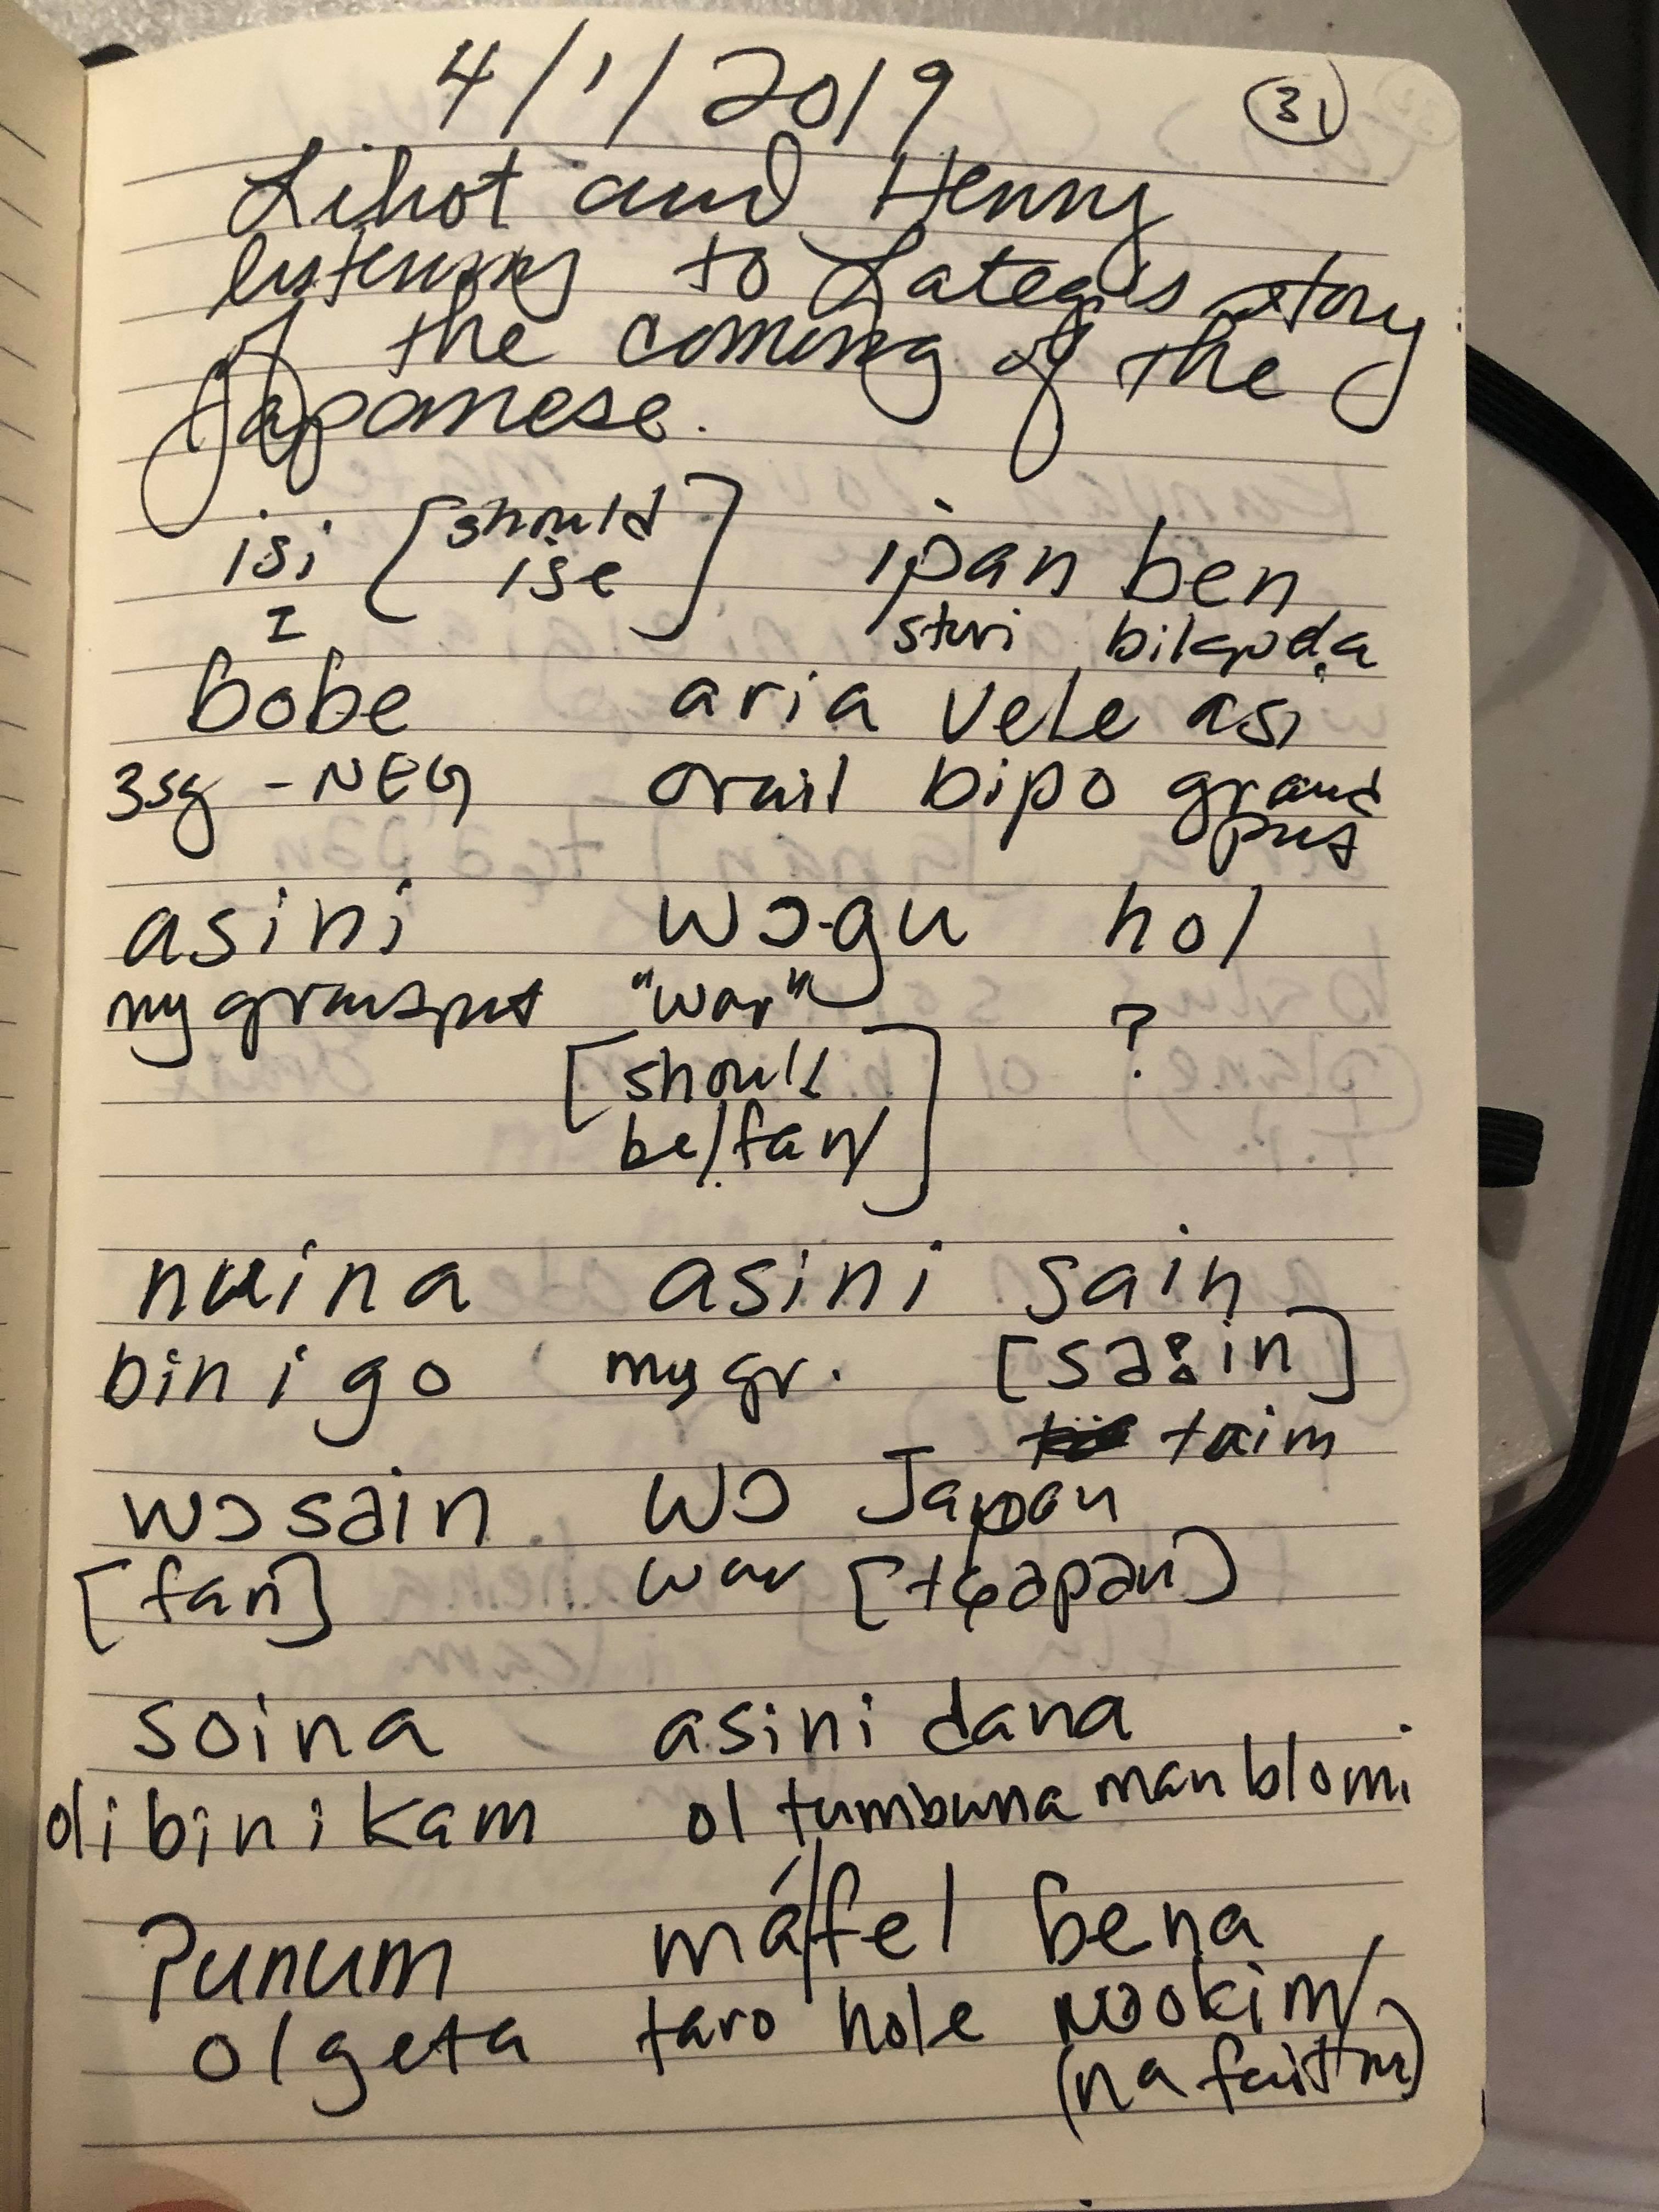 4/1/2019 31
Lihot and Henny
listening to Lategi's story
of the coming of the
Japanese.
isi [should ipan ben
ise]
I stori bilapoda
bobe aria vele asi
3sg -NEG orait bipo grand
pus
asini wɔ-gu hol
my grandput "war" ?
[should
be /fan/]
nuina asini sain
bin i go my gr. [sa:in]
taim
wɔsain wɔ Japan
[fan] war [tɕapan]
soina asini dana
ol i bin i kam ol tumbuna man blo mi
ʔunum máfel bena
olgeta taro hole wokim/
(na faitim)